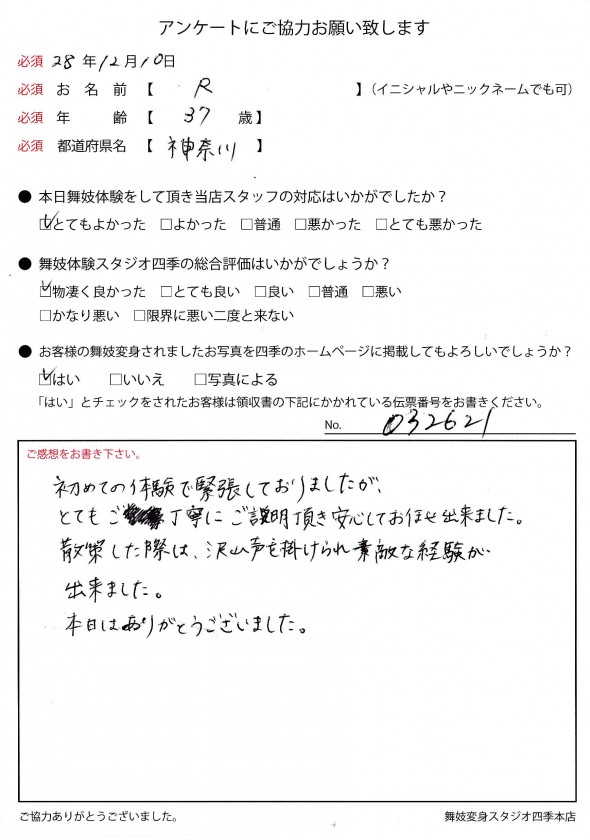 アンケートにご協力お願い致します
必須 28年12月10日
必須 お名前【 R 】(イニシャルやニックネームでも可)
必須 年齢【 37 歳】
必須 都道府県名【 神奈川 】
● 本日舞妓体験をして頂き当店スタッフの対応はいかがでしたか?
☑とてもよかった □よかった □普通 □悪かった □とても悪かった
● 舞妓体験スタジオ四季の総合評価はいかがでしょうか?
☑物凄く良かった □とても良い □良い □普通 □悪い
□かなり悪い □限界に悪い二度と来ない
● お客様の舞妓変身されましたお写真を四季のホームページに掲載してもよろしいでしょうか?
☑はい □いいえ □写真による
「はい」とチェックをされたお客様は領収書の下記にかかれている伝票番号をお書きください。
No. 032621
ご感想をお書き下さい。
初めての体験で緊張しておりましたが、
とてもご丁寧にご説明頂き安心してお任せ出来ました。
散策した際は、沢山声を掛けられ素敵な経験が
出来ました。
本日はありがとうございました。
ご協力ありがとうございました。 舞妓変身スタジオ四季本店